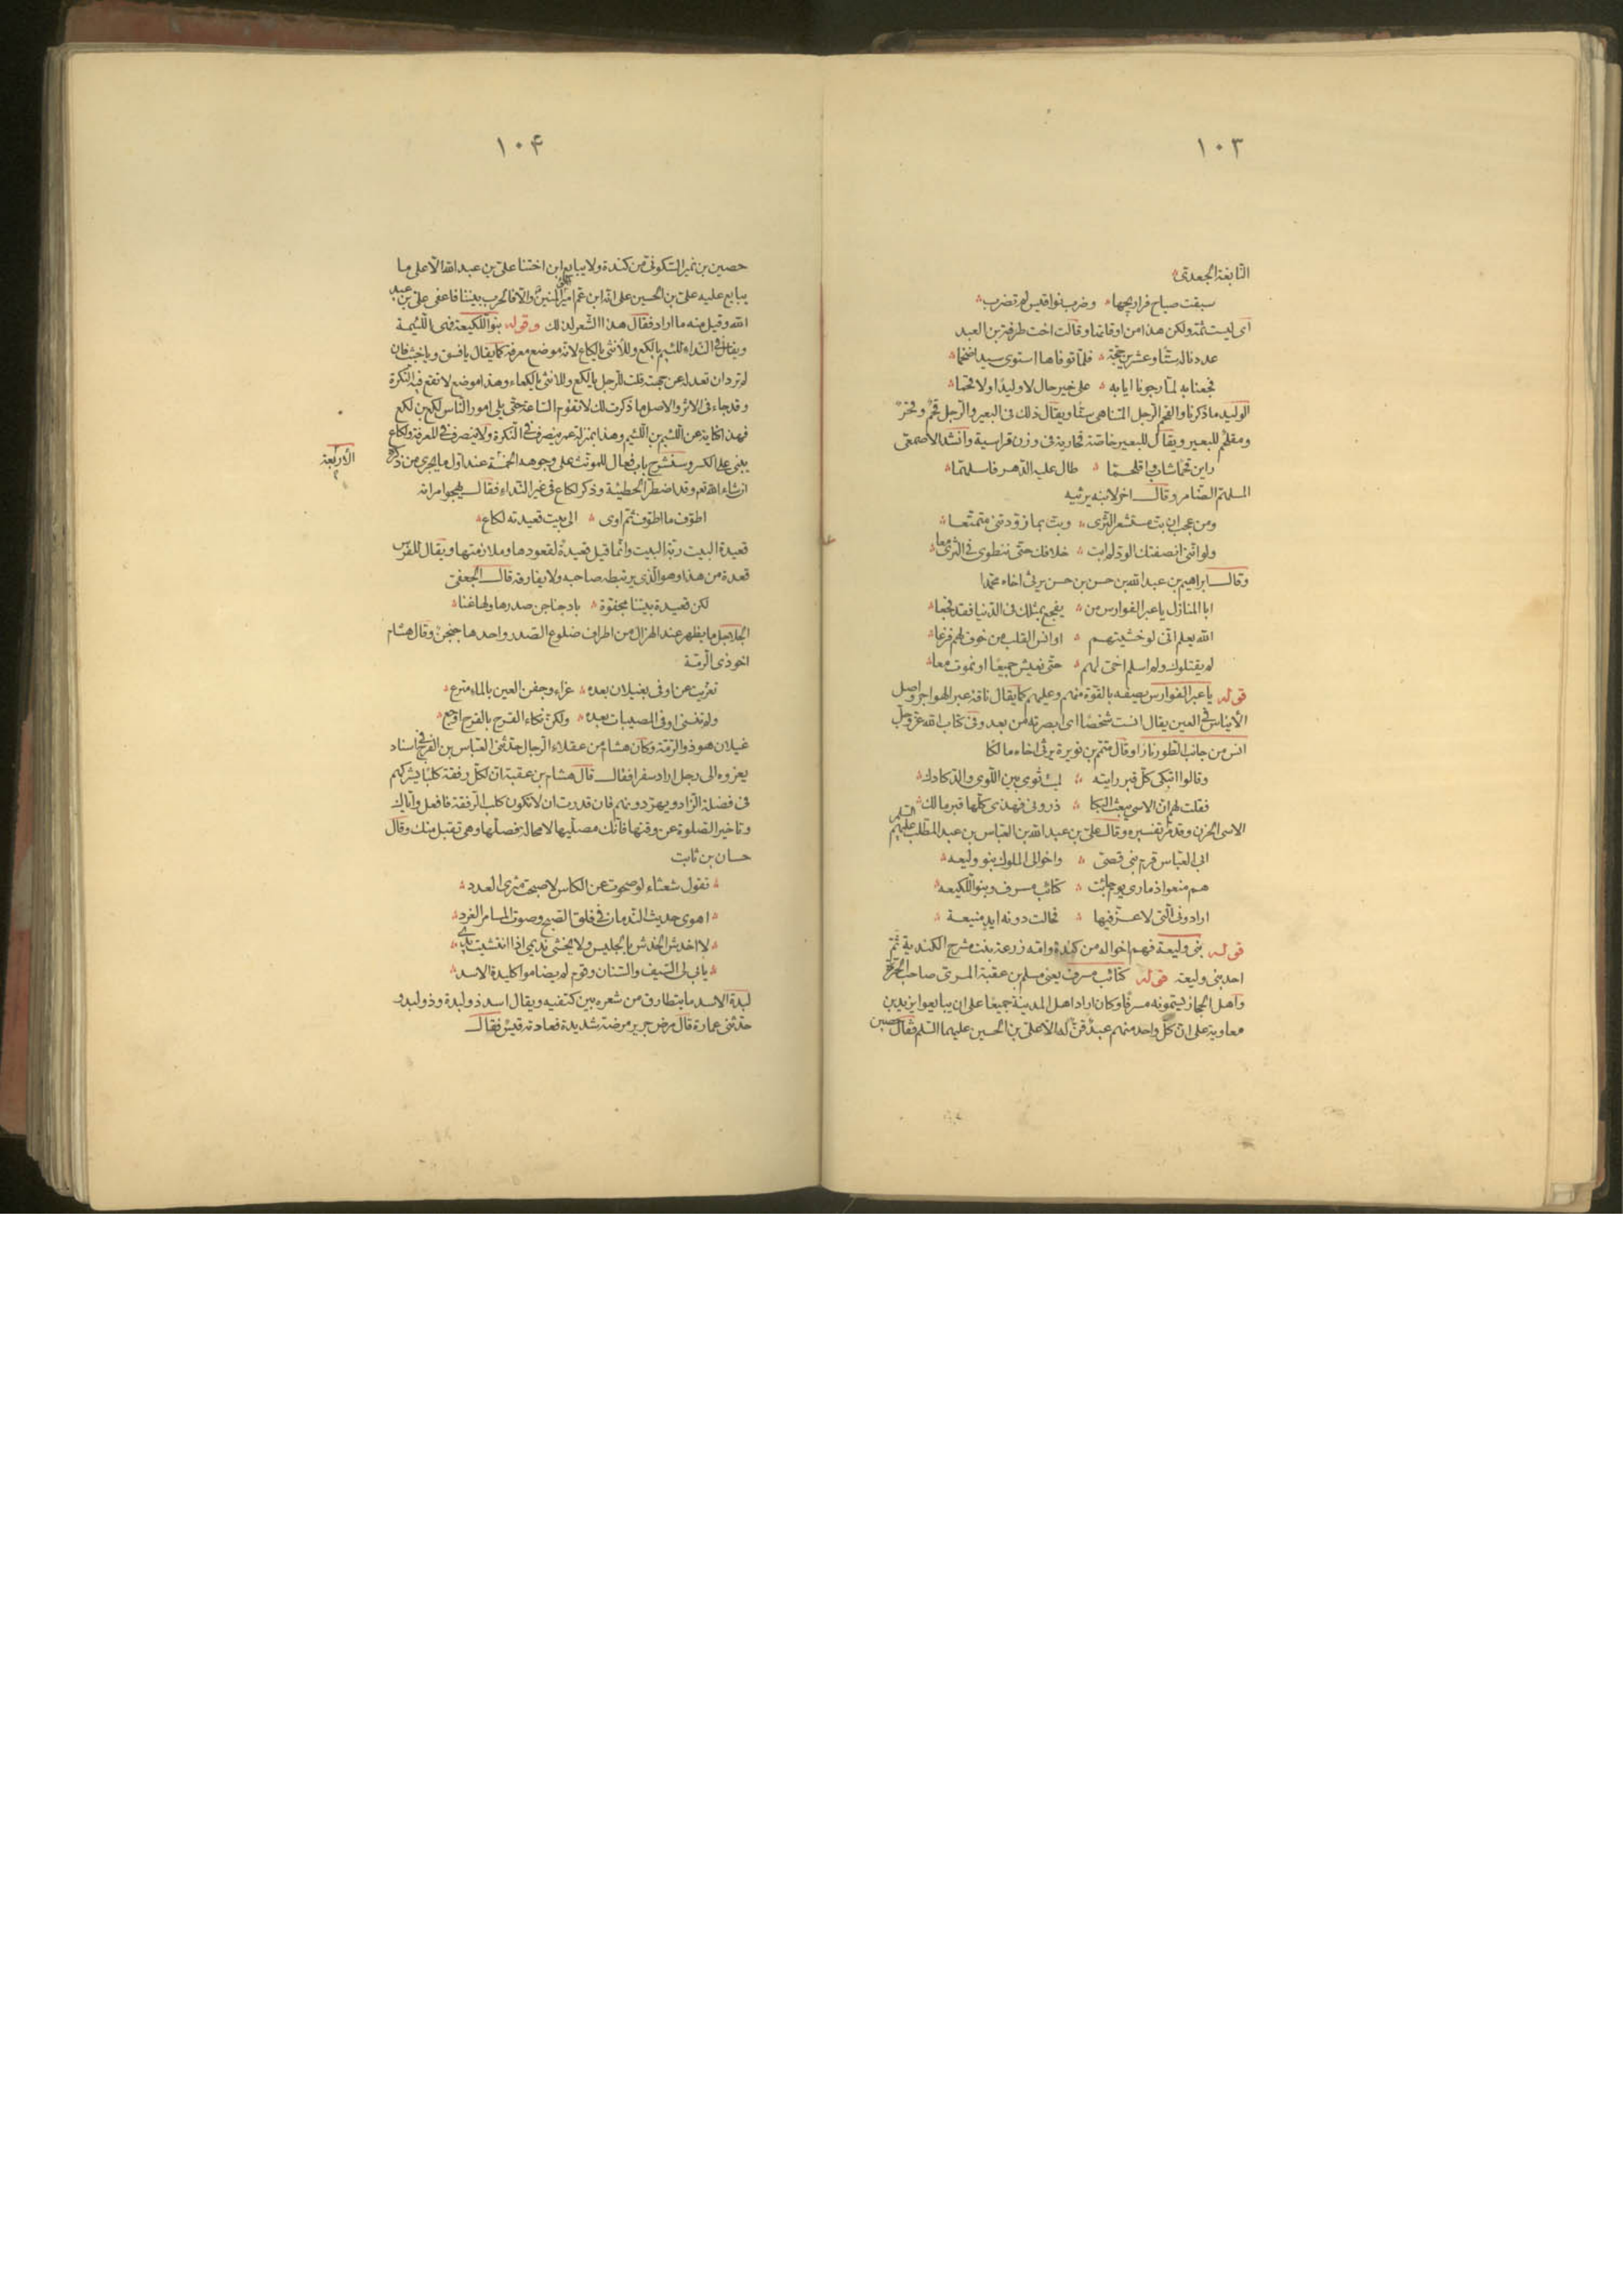 ١٠٣
النّابغة الجعدىّ
سبقت صياح فراريجها وضرب نواقيس لم تضرب
اى ليست ثمّة ولكن هذا من اوقاتها وقالت اخت طرفة بن العبد
عددنا له ستّا وعشرين حجّة فلمّا توفّاها استوى سيدا ضخما
فجعنا به لمّا رجونا ايابه على خير حال لا وليدا ولا قحما
الوليد ما ذكرنا والقحم الرّجل المتناهى سنّا ويقال ذلك فى البعير والرّجل قحم وقحر
ومقلحمّ للبعير ويقال للبعير خاصّة قحارية فى وزن قراسية وانشد الاصمعى
راين قحما شاب واقلحمّا طال عليه الدّهر فاسلهمّا
المسلهمّ الضّامر وقال اخر لابنه يرثيه
ومن عجب ان بتّ مستشعر الثّرى وبتّ بما زوّدتنى متمتّعا
ولو انّنى انصفتك الودّ لم ابت خلافك حتّى ننطوى فى الثّرى معا
وقال ابراهيم بن عبد الله بن حسن بن حسن يرثى اخاه محمّدا
ابا المنازل يا عبر الفوارس من يفجع بمثلك فى الدّنيا فقد فجعا
الله يعلم انّى لو خشيتهم او انس القلب من خوف لهم فزعا
لم يقتلوك ولم اسلم اخى لهم حتّى نعيش جميعا او نموت معا
قوله يا عبر الفوارس يصفه بالقوّة منهم وعليهم كما يقال ناقة عبر الهواجر واصل
الأيناس فى العين يقال انست شخصا اى ابصرته من بعد وفى كتاب الله عزّ وجلّ
انس من جانب الطّور نارا وقال متمّم بن نويرة يرثى اخاه مالكا
وقالوا اتبكى كلّ قبر رايته لميت ثوى بين اللّوى والدّكادك
فقلت لهم انّ الاسى يبعث البكا ذرونى فهذى كلّها قبر مالك
الاسى الحزن وقد مرّ تفسيره وقال علىّ بن عبد الله بن العبّاس بن عبد المطّلب عليهم السّلم
ابى العبّاس قرم بنى قصىّ واخوالى الملوك بنو وليعه
هم منعوا ذمارى يوم جائت كتائب مسرف وبنو اللّكيعه
ارادونى الّتى لا عزّ فيها فحالت دونه ايد منيعة
قوله بنى وليعة فهم اخواله من كندة وامّه زرعة بنت مشرج الكندية ثمّ
احد بنى وليعة قوله كتائب مسرف يعنى مسلم بن عقبة المرّى صاحب الحرّة
واهل الحجاز يسمّونه مسرفا وكان اراد اهل المدينة جميعا على ان يبايعوا يزيد بن
معاوية على انّ كلّ واحد منهم عبد قنّ له الّا علىّ بن الحسين عليهما السّلم فقال حصين
١٠۴
حصين بن نمير السّكونى من كندة ولا يبايع ابن اختنا علىّ بن عبد الله الّا على ما
يبايع عليه علىّ بن الحسين على انّه ابن عمّ امير المؤمنين والّا فالحرب بيننا فاعفى علىّ بن عبد
الله وقيل منه ما اراد فقال هذا الشّعر لذلك وقوله بنو اللّكيعة فهى اللّئيمة
ويقال فى النّداء للئيم يا لكع وللأنثى يا لكاع لانّه موضع معرفة كما يقال يا فسق ويا خبث فان
لم ترد ان تعدله عن جهته قلت للرّجل يا الكع وللانثى يا لكعاء وهذا موضع لا تقع فيه النّكرة
وقد جاء فى الاثر والاصل ما ذكرت لك لا تقوم السّاعة حتّى يلى امور النّاس لكع بن لكع
فهذا كناية عن اللّئيم بن اللّئيم وهذا بمنزلة عمر ينصرف فى النّكرة ولا ينصرف فى المعرفة ولكاع
يبنى على الكسر وسنشرح باب فعال للمونّث على وجوهه الخمسة عند اوّل ما يجرى من ذكره
الأربعة
ان شاء الله تعم وقد اضطرّ الحطيئة وذكر لكاع فى غير النّداء فقال يهجو امراته
اطوّف ما اطوّف ثمّ اوى الى بيت قعيدته لكاع
قعيدة البيت ربّة البيت وانّما قيل قعيدة لقعودها وملازمتها ويقال للفرس
قعدة من هذا وهو الّذى يرتبطه صاحبه ولا يفارقه قال الجعفى
لكن قعيدة بيتنا مجفوّة باد جناجن صدرها ولها غنا
الجناجن ما يظهر عند الهزال من اطراف ضلوع الصّدر واحدها جنجن وقال هشام
اخو ذى الرّمّة
تعزّيت عن اوفى بغيلان بعده عزاء وجفن العين بالماء مترع
ولم تنسنى اوفى المصيبات بعده ولكنّ نكاء القرح بالقرح اوجع
غيلان هو ذو الرّمّة وكان هشام من عقلاء الرّجال حدّثنى العبّاس بن الفرج فى اسناد
يعزوه الى رجل اراد سفرا فقال قال هشام بن عقبة انّ لكلّ رفقة كلبا يشركهم
فى فضلة الزّاد ويهرّ دونهم فان قدرت ان لا تكون كلب الرّفقة فافعل وايّاك
وتاخير الصّلوة عن وقتها فانّك مصلّيها لا محالة فصلّها وهى تقبل منك وقال
حسان بن ثابت
تقول شعثاء لو صحوت عن الكاس لاصبحت مثرى العدد
اهوى حديث النّدمان فى فلق الصّبح وصوت المسامر الغرد
لا اخدش الخدش بالجليس ولا يخشى نديمى اذا انتشيت يدى
يابى لى السّيف والسّنان وقوم لم يضاموا كلبدة الاسد
لبدة الاسد ما يتطارق من شعره بين كتفيه ويقال اسد ذو لبدة وذو لبد و
حدّثنى عمارة قال مرض جرير مرضة شديدة فعادته قيس فقال